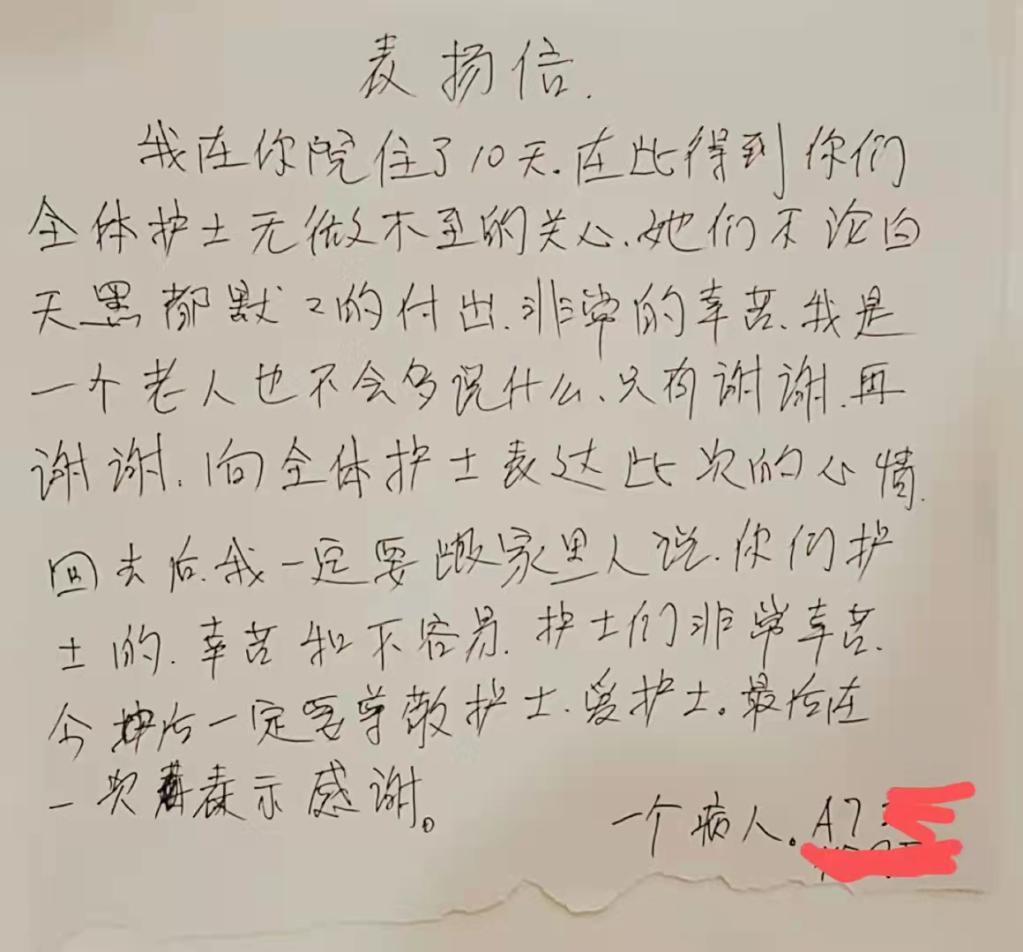 表扬信.
我在你院住了10天.在此得到你们
全体护士无微不至的关心.她们不论白
天黑都默々的付出.非常的幸苦.我是
一个老人也不会多说什么.只有谢谢.再
谢谢.向全体护士表达此次的心情.
回去后.我一定要跟家里人说.你们护
士的.幸苦和不容易.护士们非常幸苦.
今后一定要尊敬护士.爱护士。最后在
一次表示感谢。
一个病人。A7